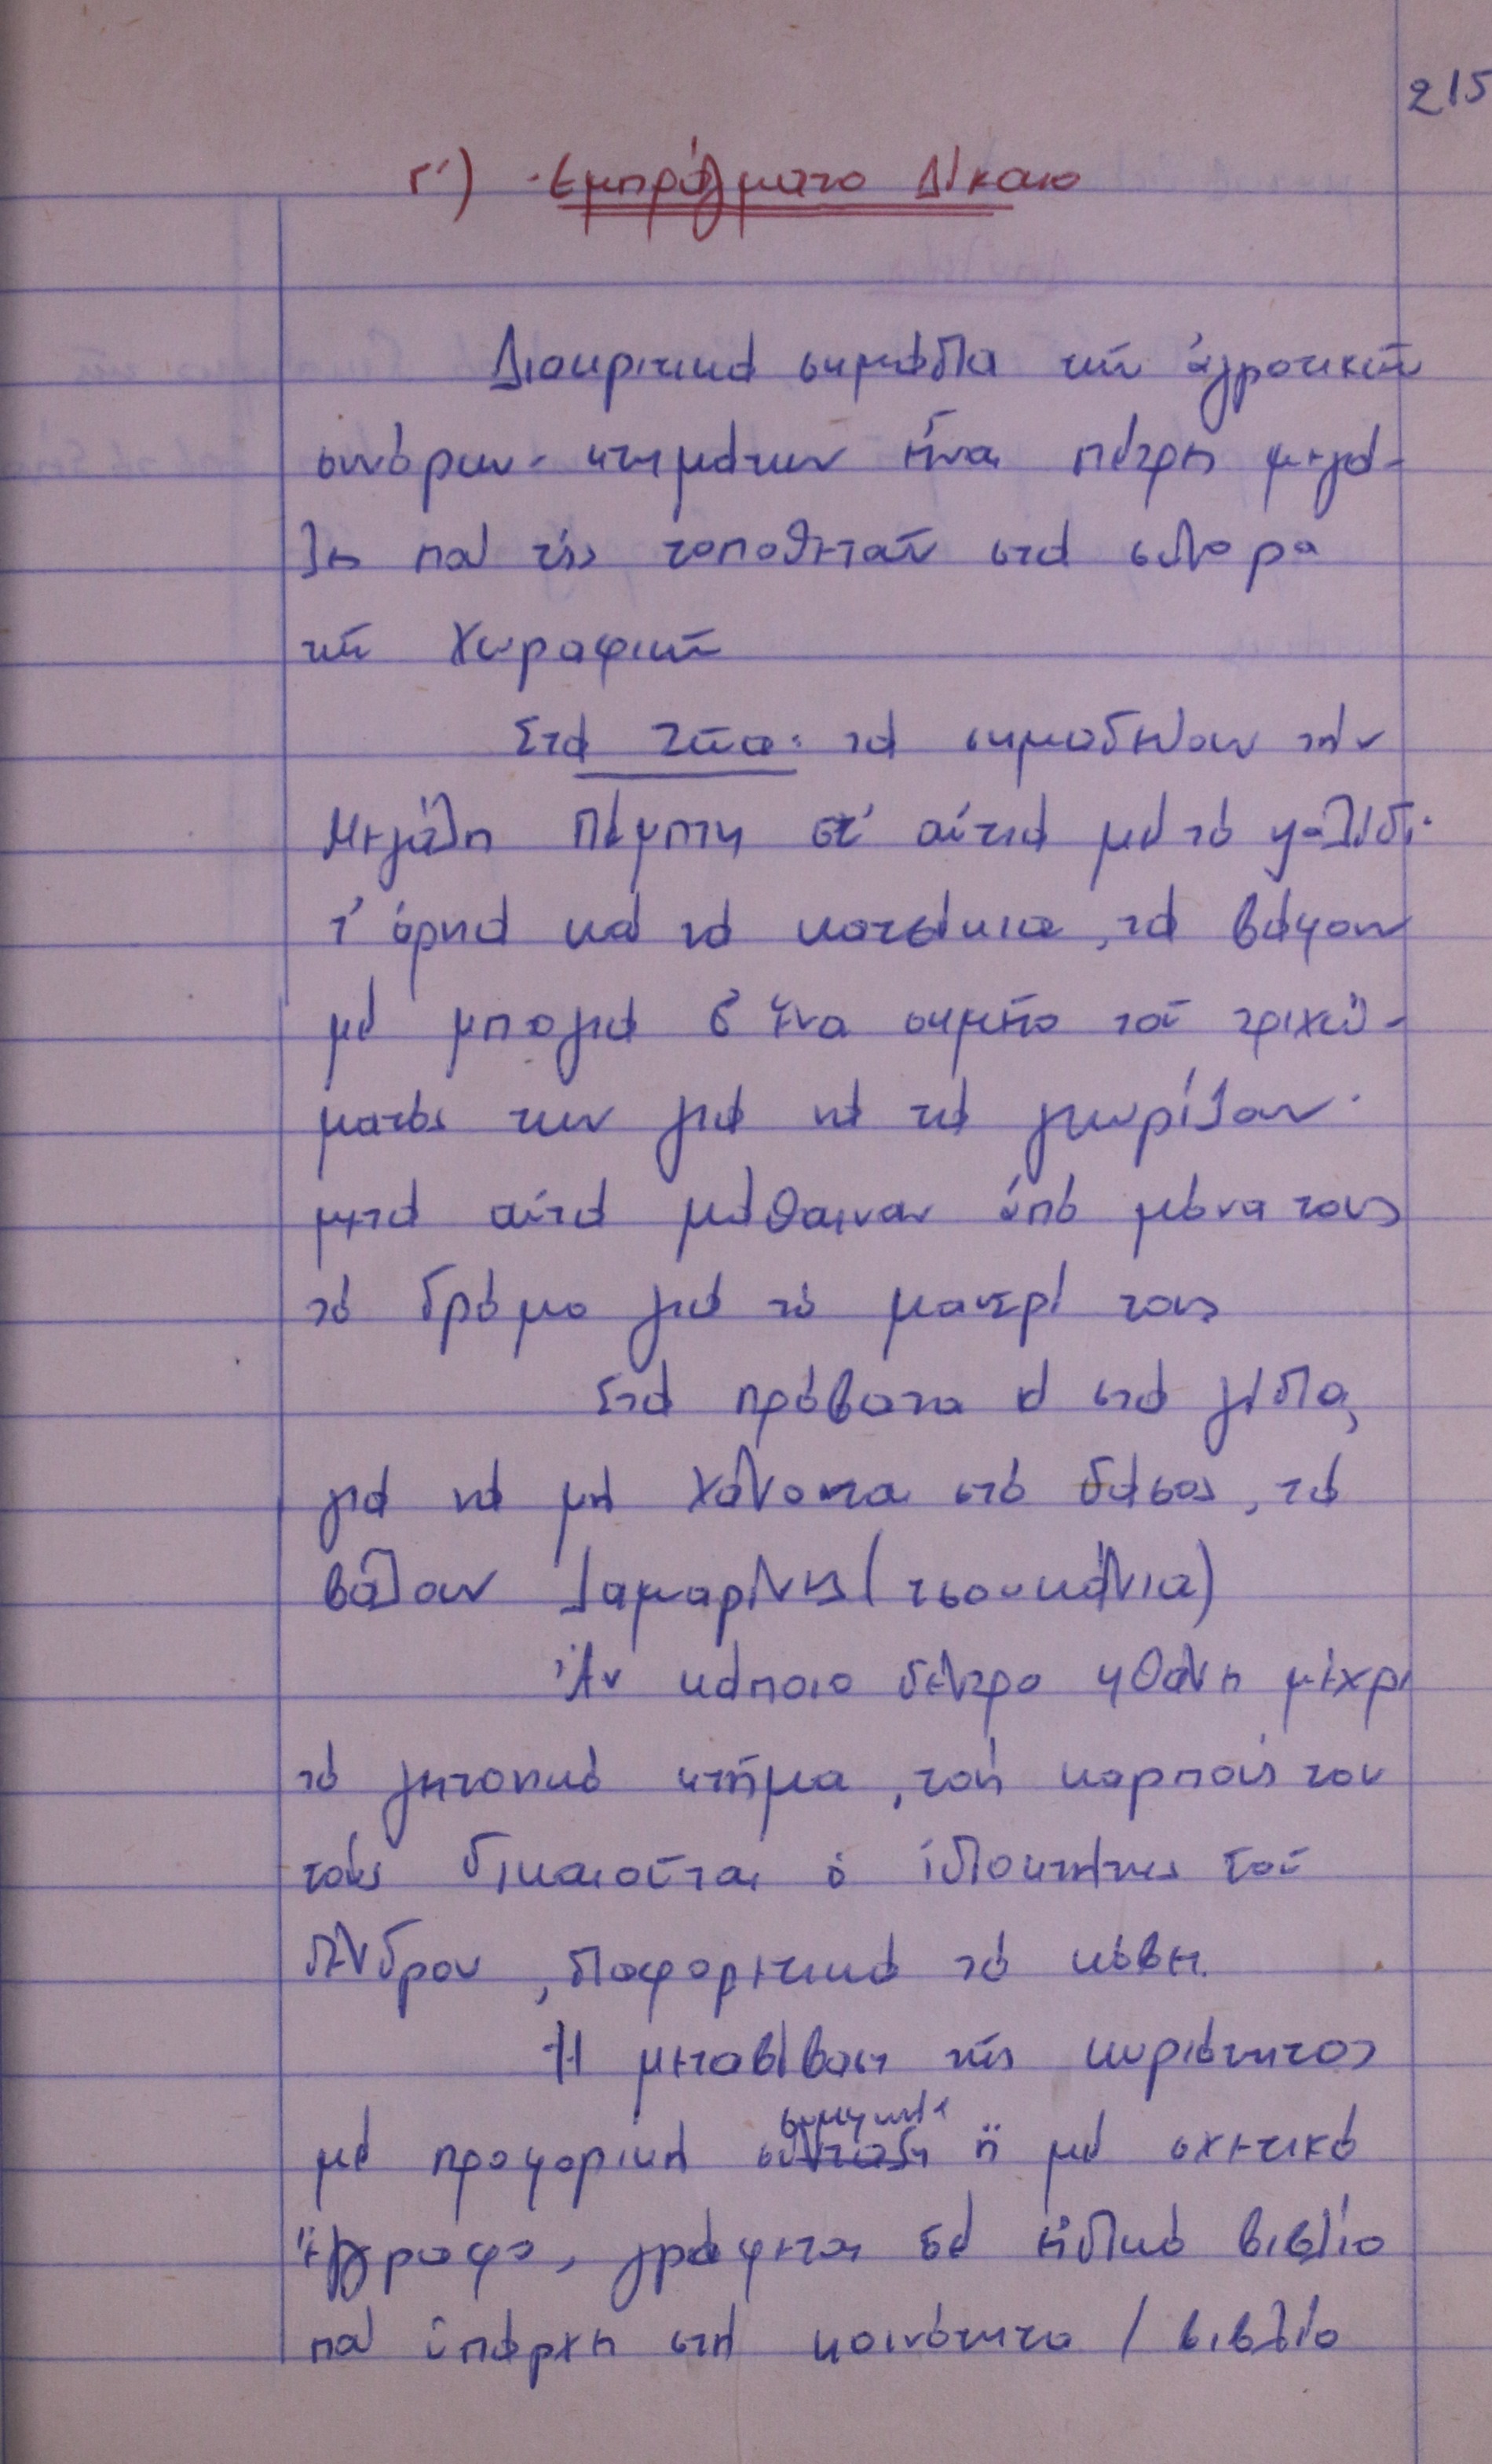 215
Γ') Ἐμπράγματο Δίκαιο
Διακριτικά σημάδια τῶν ἀγροτικῶν
συνόρων - κτημάτων εἶναι πέτρες μεγά-
λες πού τίς τοποθετοῦν στά σύνορα
τῶν χωραφιῶν
Στά ζῶα: τά σημαδεύουν τήν
Μεγάλη Πέμπτη στ' αὐτιά μέ τό ψαλίδι·
τ' ἀρνιά καί τά κατσίκια, τά βάφουν
μέ μπογιά σ' ἕνα σημεῖο τοῦ τριχώ-
ματός των γιά νά τά γνωρίζουν·
μετά αὐτά μάθαιναν ἀπό μόνα τους
τό δρόμο γιά τό μαντρί τους
Στά πρόβατα κ στά γίδια,
γιά νά μή χάνονται στό δάσος, τά
βάζουν λαμαρίνες (τσουκάνια)
Ἄν κάποιο δέντρο φθάνει μέχρι
τό γειτονικό κτῆμα, τούς καρπούς του
τούς δικαιοῦται ὁ ἰδιοκτήτης τοῦ
δένδρου, διαφορετικά τό κόβει.
Ἡ μεταβίβαση τῆς κυριότητος
συμφωνία
μέ προφορική σύνταξη ἤ μέ σχετικό
ἔγγραφο, γράφεται σέ εἰδικό βιβλίο
πού ὑπάρχει στή κοινότητα / βιβλίο